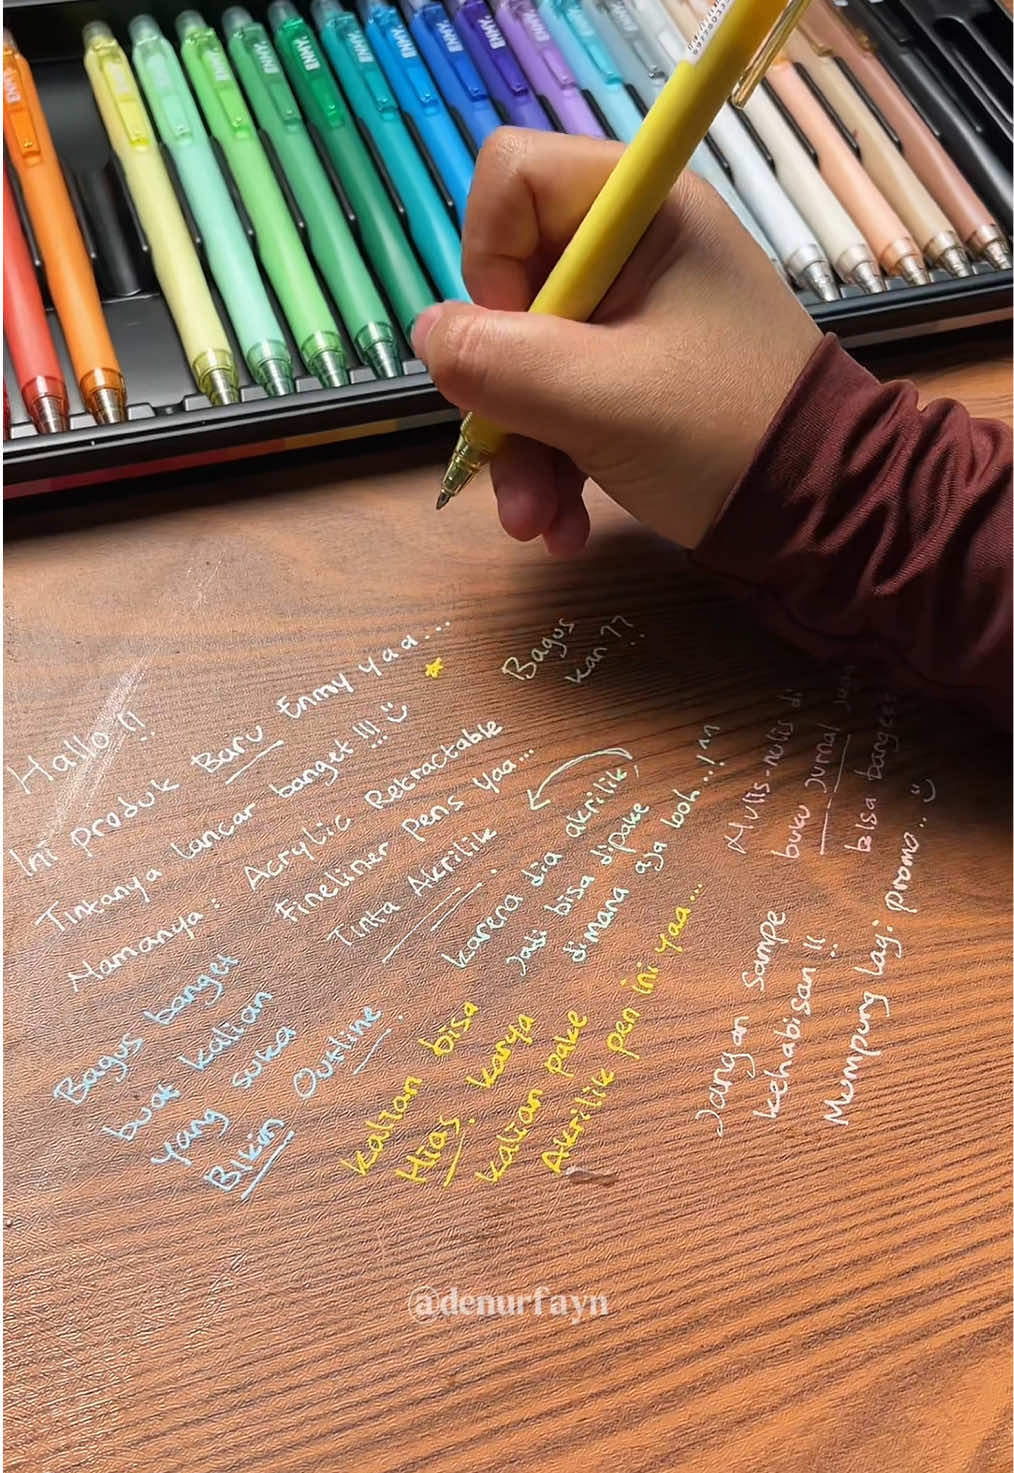 ENMY.
ENMY.
ENMY.
ENMY.
ENMY.
ENMY.
ENMY.
ENMY.
Hallo !!
Ini produk Baru Enmy yaa....
Tintanya lancar banget !!!
Namanya : Acrylic Retractable
Fineliner Pens yaa...
Tinta Akrilik
Bagus
kan??
karena dia akrilik,
Jadi bisa dipake
dimana aja looh..!
Bagus banget
buat kalian
yang suka
Bikin Outline
kalian bisa
Hias karya
kalian pake
Akrilik pen ini yaa...
Nulis-nulis di
buku Jurnal Juga
bisa banget
Jangan Sampe
kehabisan !!
Mumpung lagi promo..
@denurfayn